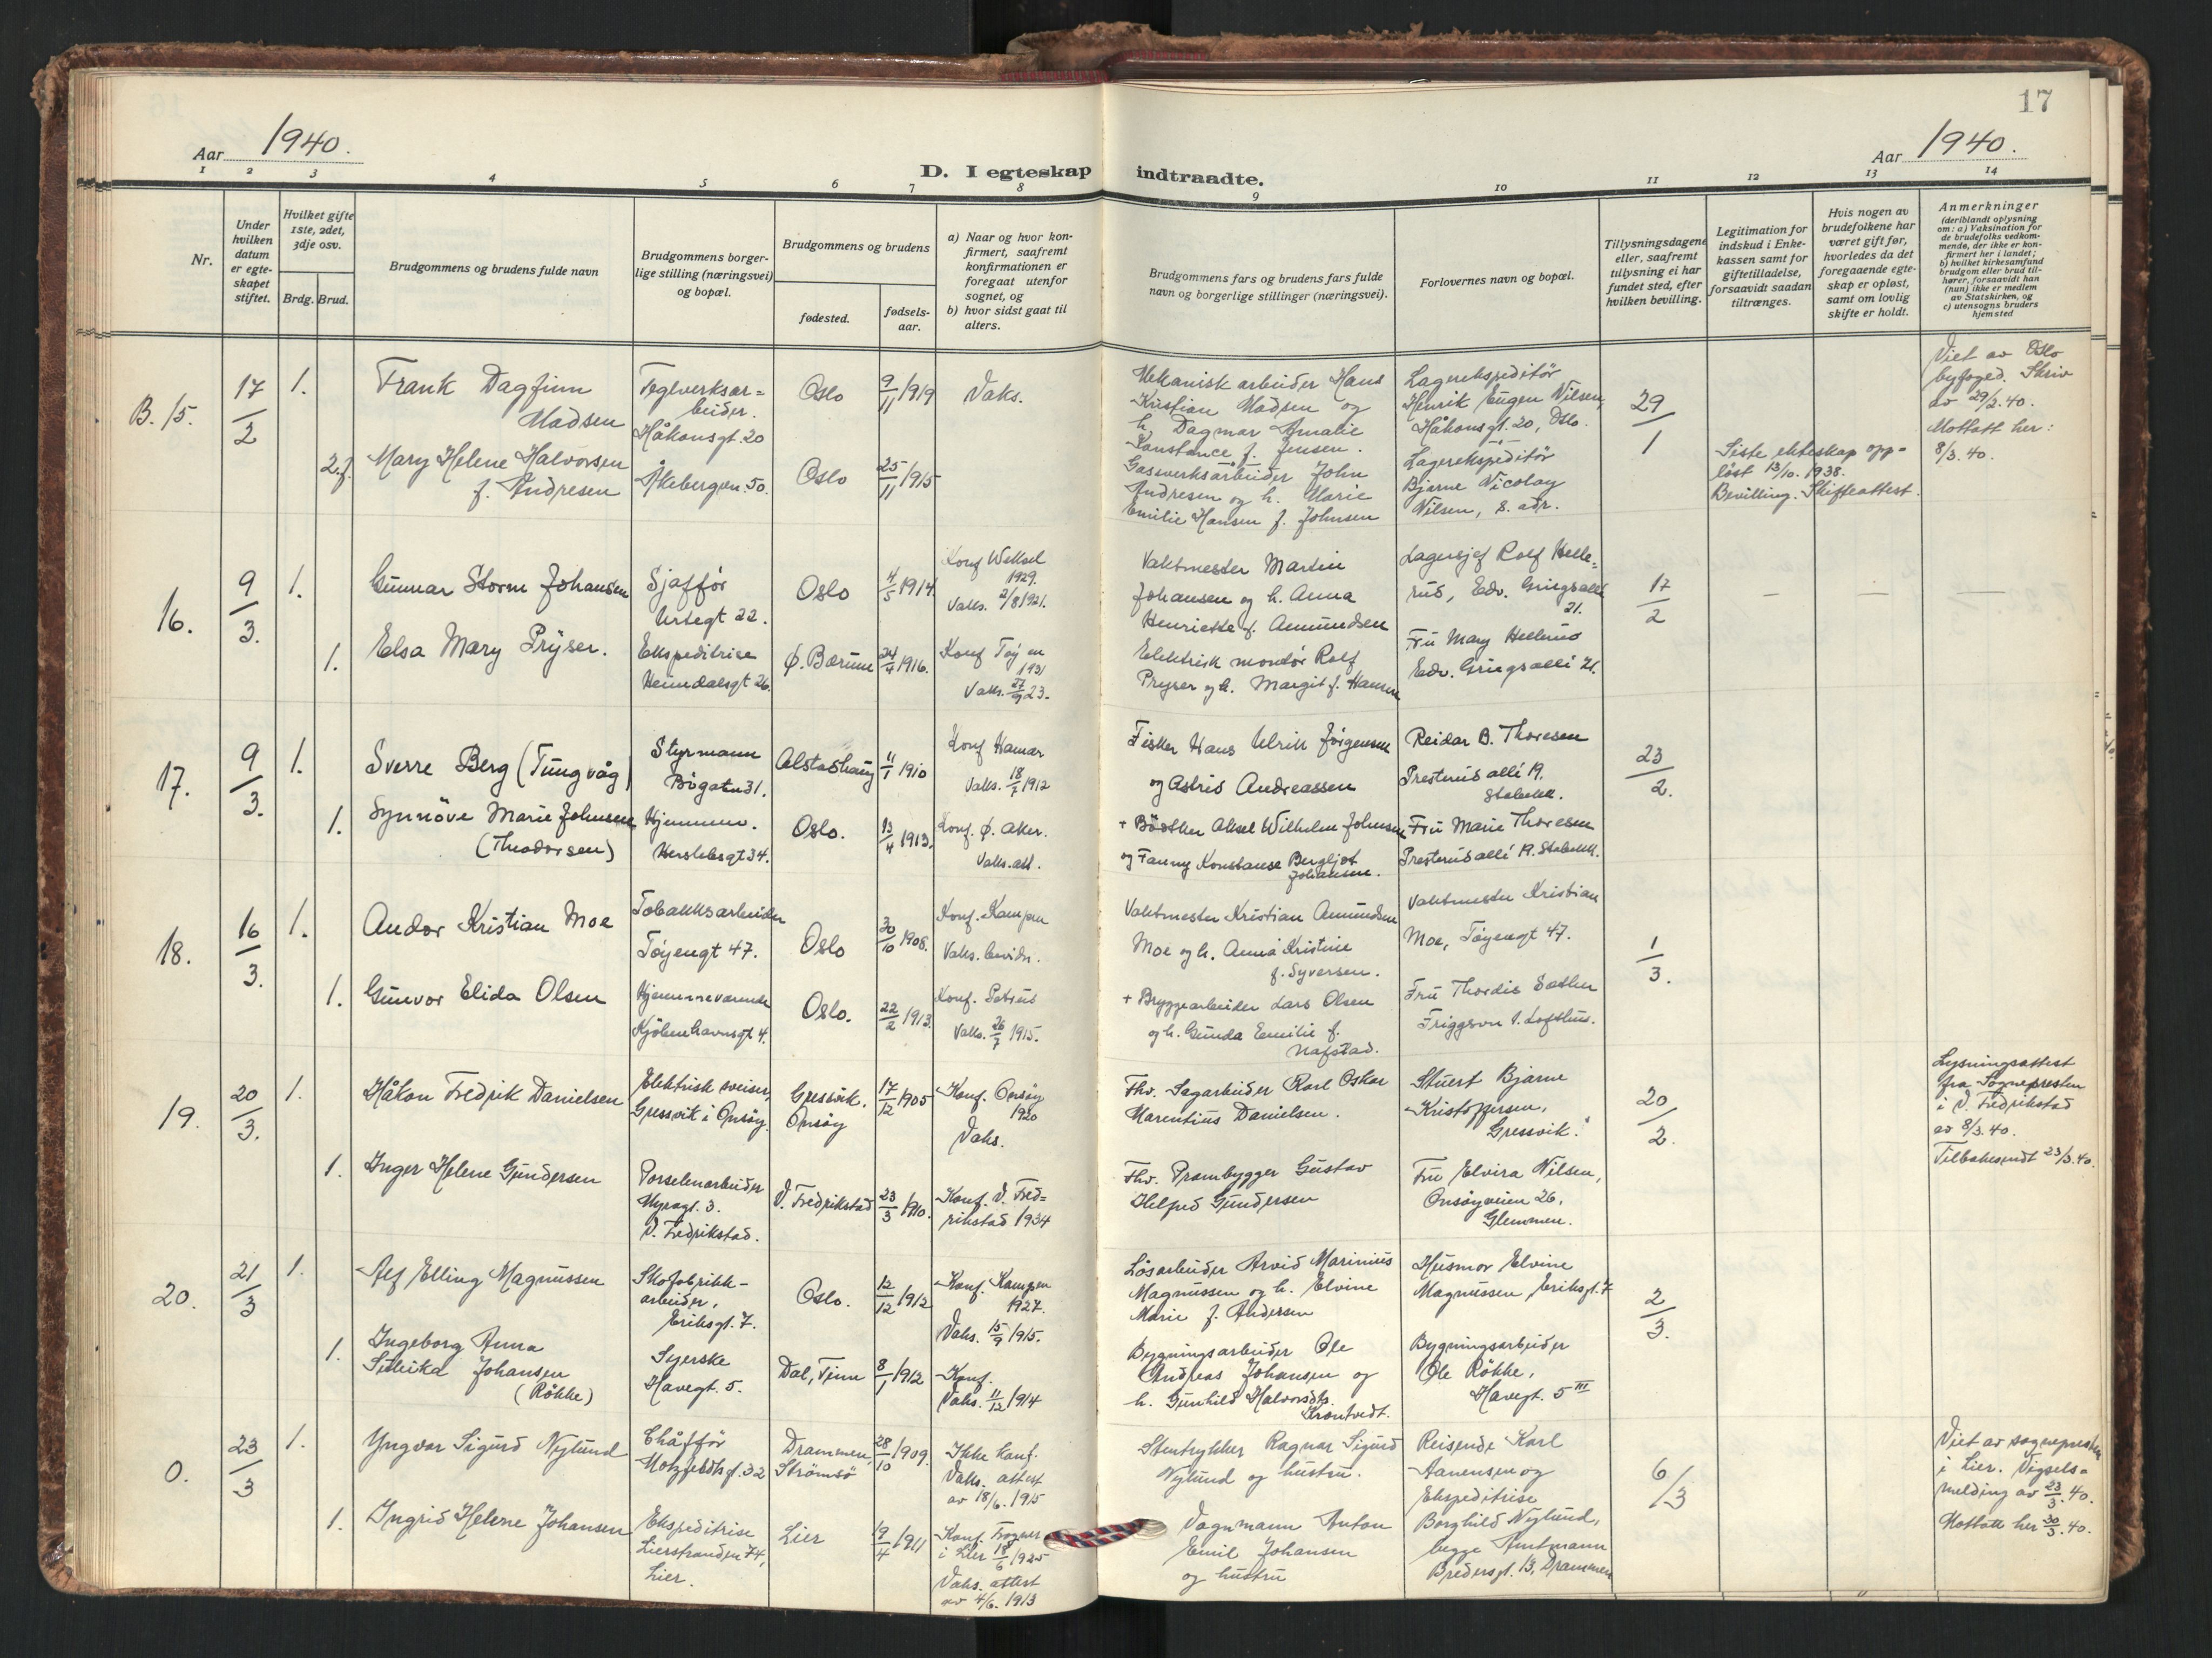 17
Aar 1940.
Aar 1940.
D. I egteskap indtraadte.
1 2 3 4 5 6 7 8 9 10 11 12 13 14
Nr.
Under
hvilken
datum
er egte-
skapet
stiftet.
Hvilket gifte
1ste, 2det,
3dje osv.
Brdg. Brud.
Brudgommens og brudens fulde navn
Brudgommens borger-
lige stilling (næringsvei)
og bopæl.
Brudgommens og brudens
fødested.
fødsels-
aar.
a) Naar og hvor kon-
firmert, saafremt
konfirmationen er
foregaat utenfor
sognet, og
b) hvor sidst gaat til
alters.
Brudgommens fars og brudens fars fulde
navn og borgerlige stillinger (næringsvei).
Forlovernes navn og bopæl.
Tillysningsdagene
eller, saafremt
tillysning ei har
fundet sted, efter
hvilken bevilling.
Legitimation for
indskud i Enke-
kassen samt for
giftetilladelse,
forsaavidt saadan
tiltrænges.
Hvis nogen av
brudefolkene har
været gift før,
hvorledes da det
foregaaende egte-
skap er opløst,
samt om lovlig
skifte er holdt.
Anmerkninger
(deriblandt oplysning
om: a) Vaksination for
de brudefolks vedkom-
mende, der ikke er kon-
firmert her i landet;
b) hvilket kirkesamfund
brudgom eller brud til-
hører, forsaavidt han
(hun) ikke er medlem
av Statskirken, og
c) utensogns bruders
hjemsted
B. 15.
17/2
1.
Frank Dagfinn
Madsen
Teglverksar=
beider.
Håkonsgt. 20
Oslo
9/11 1919
Vaks.
Mekanisk arbeider Hans
Kristian Madsen og
h. Dagmar Amalie
Konstance f. Jensen.
Lagerekspeditör
Henrik Eugen Nilsen,
Håkonsgt. 20, Oslo.
29/1
Viet av Oslo
byfoged. Skriv
av 29/2.40.
Mottatt her:
8/3. 40.
2. f.
Mary Helene Halvorsen
f. Andresen
Åkebergvn. 50.
Oslo
25/11 1915
Gassverksarbeider John
Andresen og h. Marie
Emilie Hansen f. Johnsen
Lagerekspeditör
Bjarne Nicolay
Nilsen, s. adr.
Siste ekteskap opp-
löst 13/10. 1938.
Bevilling. Skifteattest.
16.
9/3.
1.
Gunnar Storm Johansen
Sjaffør
Urtegt 22.
Oslo
4/5 1914
Konf Wexsel
1929.
Vaks. 2/8 1921.
Vaktmester Martin
Johansen og h. Anna
Henriette f. Amundsen
Lagersjef Rolf Helle-
rud, Edv. Griegs alle
21.
17/2
— — —
1.
Elsa Mary Prÿser.
Ekspeditrise
Heimdalsgt 26.
Ø. Bærum
24/4 1916.
Konf Tøyen
1931
Vaks. 27/9 23.
Elektrisk montör Rolf
Pryser og h. Margit f. Hansen
Fru Mary Hellerud
Edv. Griegs allé 21.
17.
9/3.
1.
Sverre Berg (Tungvåg)
Styrmann
Bögatn 31.
Alstashaug
11/1 1910
Konf Hamar
Vaks. 18/7 1912
Fisker Hans Ulrik Jörgensen
og Astrid Andreassen
Reidar B. Thoresen
Presterud allé 19.
Stabekk.
23/2.
1.
Synnöve Marie Johnsen
(Theodorsen)
Hjemmev.
Herslebsgt 34.
Oslo.
13/4 1913.
Konf. Ø. Aker.
Vaks. att.
+ Bödker Aksel Wilhelm Johnsen
og Fanny Konstanse Bergljot
Johansen.
Fru Marie Thoresen
Presterud allé 19. Stabekk.
18.
16/3.
1.
Andor Kristian Moe
Tobakksarbeider
Töyengt 47.
Oslo
30/10 1908.
Konf. Kampen
Vaks. bevidn.
Vaktmester Kristian Amundsen
Moe og h. Anna Kristine
f. Syversen.
Vaktmester Kristian
Moe, Töyengt 47.
1/3.
1.
Gunvor Elida Olsen
Hjemmeværende
Kjöbenhavnsgt 4.
Oslo.
22/2 1913.
Konf. Petrus
Vaks. 26/7 1915.
+ Bryggearbeider Lars Olsen
og h. Gunda Emilie f.
Nafstad.
Fru Thordis Sæther
Friggsvn 1. Lofthus.
19.
20/3.
1.
Håkon Fredrik Danielsen
Elektrisk sveiser,
Gressvik i Onsöy.
Gressvik,
Onsöy
17/12 1905
Konf. Onsöy
1920
Vaks.
Fhv. Sagarbeider Karl Oskar
Marentius Danielsen.
Stuert Bjarne
Kristoffersen,
Gressvik.
20/2.
Lysningsattest
fra Sognepresten
i V. Fredrikstad
av 8/3. 40.
Tilbakesendt 23/3. 40.
1.
Inger Helene Gundersen
Porselenarbeider
Myragt. 3.
V. Fredrikstad.
V. Fredrikstad
23/3 1910.
Konf. V. Fred=
rikstad 1934
Fhv. Prambygger Gustav
Helfred Gundersen
Fru Elvira Nilsen,
Onsöyveien 26,
Glemmen.
20.
21/3
1.
Alf Elling Magnussen
Skofabrikk-
arbeider,
Eriksgt. 7.
Oslo.
12/12 1912
Konf. Kampen
1927.
Vaks. 15/9 1915.
Lösarbeider Arvid Marinius
Magnussen og h. Elvine
Marie f. Andersen
Husmor Elvine
Magnussen, Eriksgt. 7
2/3.
1.
Ingeborg Anna
Johansen
(Rökke)
Syerske
Havegt. 5.
Dal, Tinn
8/1 1912
Konf.
Vaks. 11/12 1914
Bygningsarbeider Ole
Andreas Johansen og
h. Gunhild Halvorsdtr.
Bygningsarbeider
Ole Rökke,
Havegt. 5 III
0.
23/3
1.
Yngvar Sigurd Nylund
Chåffør
Motzfeldts gt. 32
Drammen,
Strömsö
28/10 1909.
Ikke konf.
Vaks. attest
av 18/6. 1915
Stentrykker Ragnar Sigurd
Nylund og hustru.
Reisende Karl
Aanensen og
Ekspeditrise
Borghild Nylund,
begge Amtmann
Bredersgt. 13, Drammen
6/3
Viet av sognepresten
i Lier. Vigsels=
melding av 23/3. 40.
Mottatt her 30/3. 40.
1.
Ingrid Helene Johansen
Ekspeditrise
Lierstranden 74,
Lier.
Lier
19/4 1911
Konf. Frogner
i Lier 18/6 1925
Vaks. attest
av 4/6. 1913
Vognmann Anton
Emil Johansen
og hustru